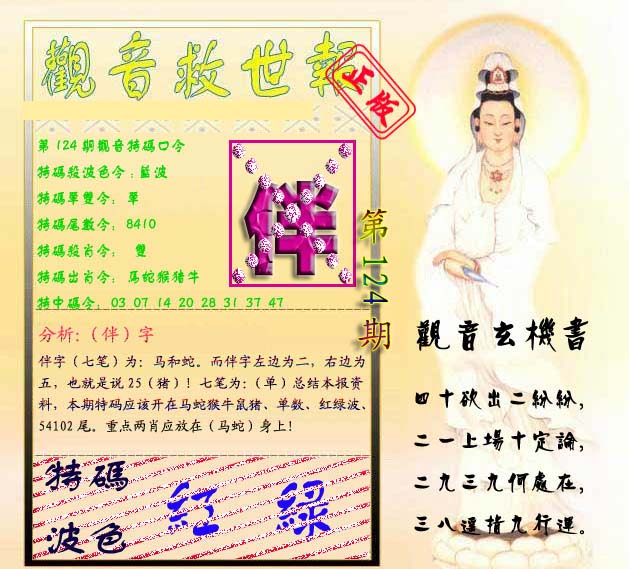 觀音救世報
正版
第124期觀音特碼口令
特碼殺波色令:藍波
特碼單雙令: 單
特碼尾數令: 8410
特碼殺肖令: 雙
特碼出肖令: 馬蛇猴猪牛
特中碼令: 03 07 14 20 28 31 37 47
伴
第124期
分析:（伴）字
伴字（七笔）为：马和蛇。而伴字左边为二，右边为
五，也就是说25（猪）！七笔为：（单）总结本报资
料，本期特码应该开在马蛇猴牛鼠猪、单数、红绿波、
54102尾。重点两肖应放在（马蛇）身上！
特碼
波色
紅 綠
觀音玄機書
四十欲出二紛紛,
二一上場十定論,
二九三九何處在,
三八運指九行運。